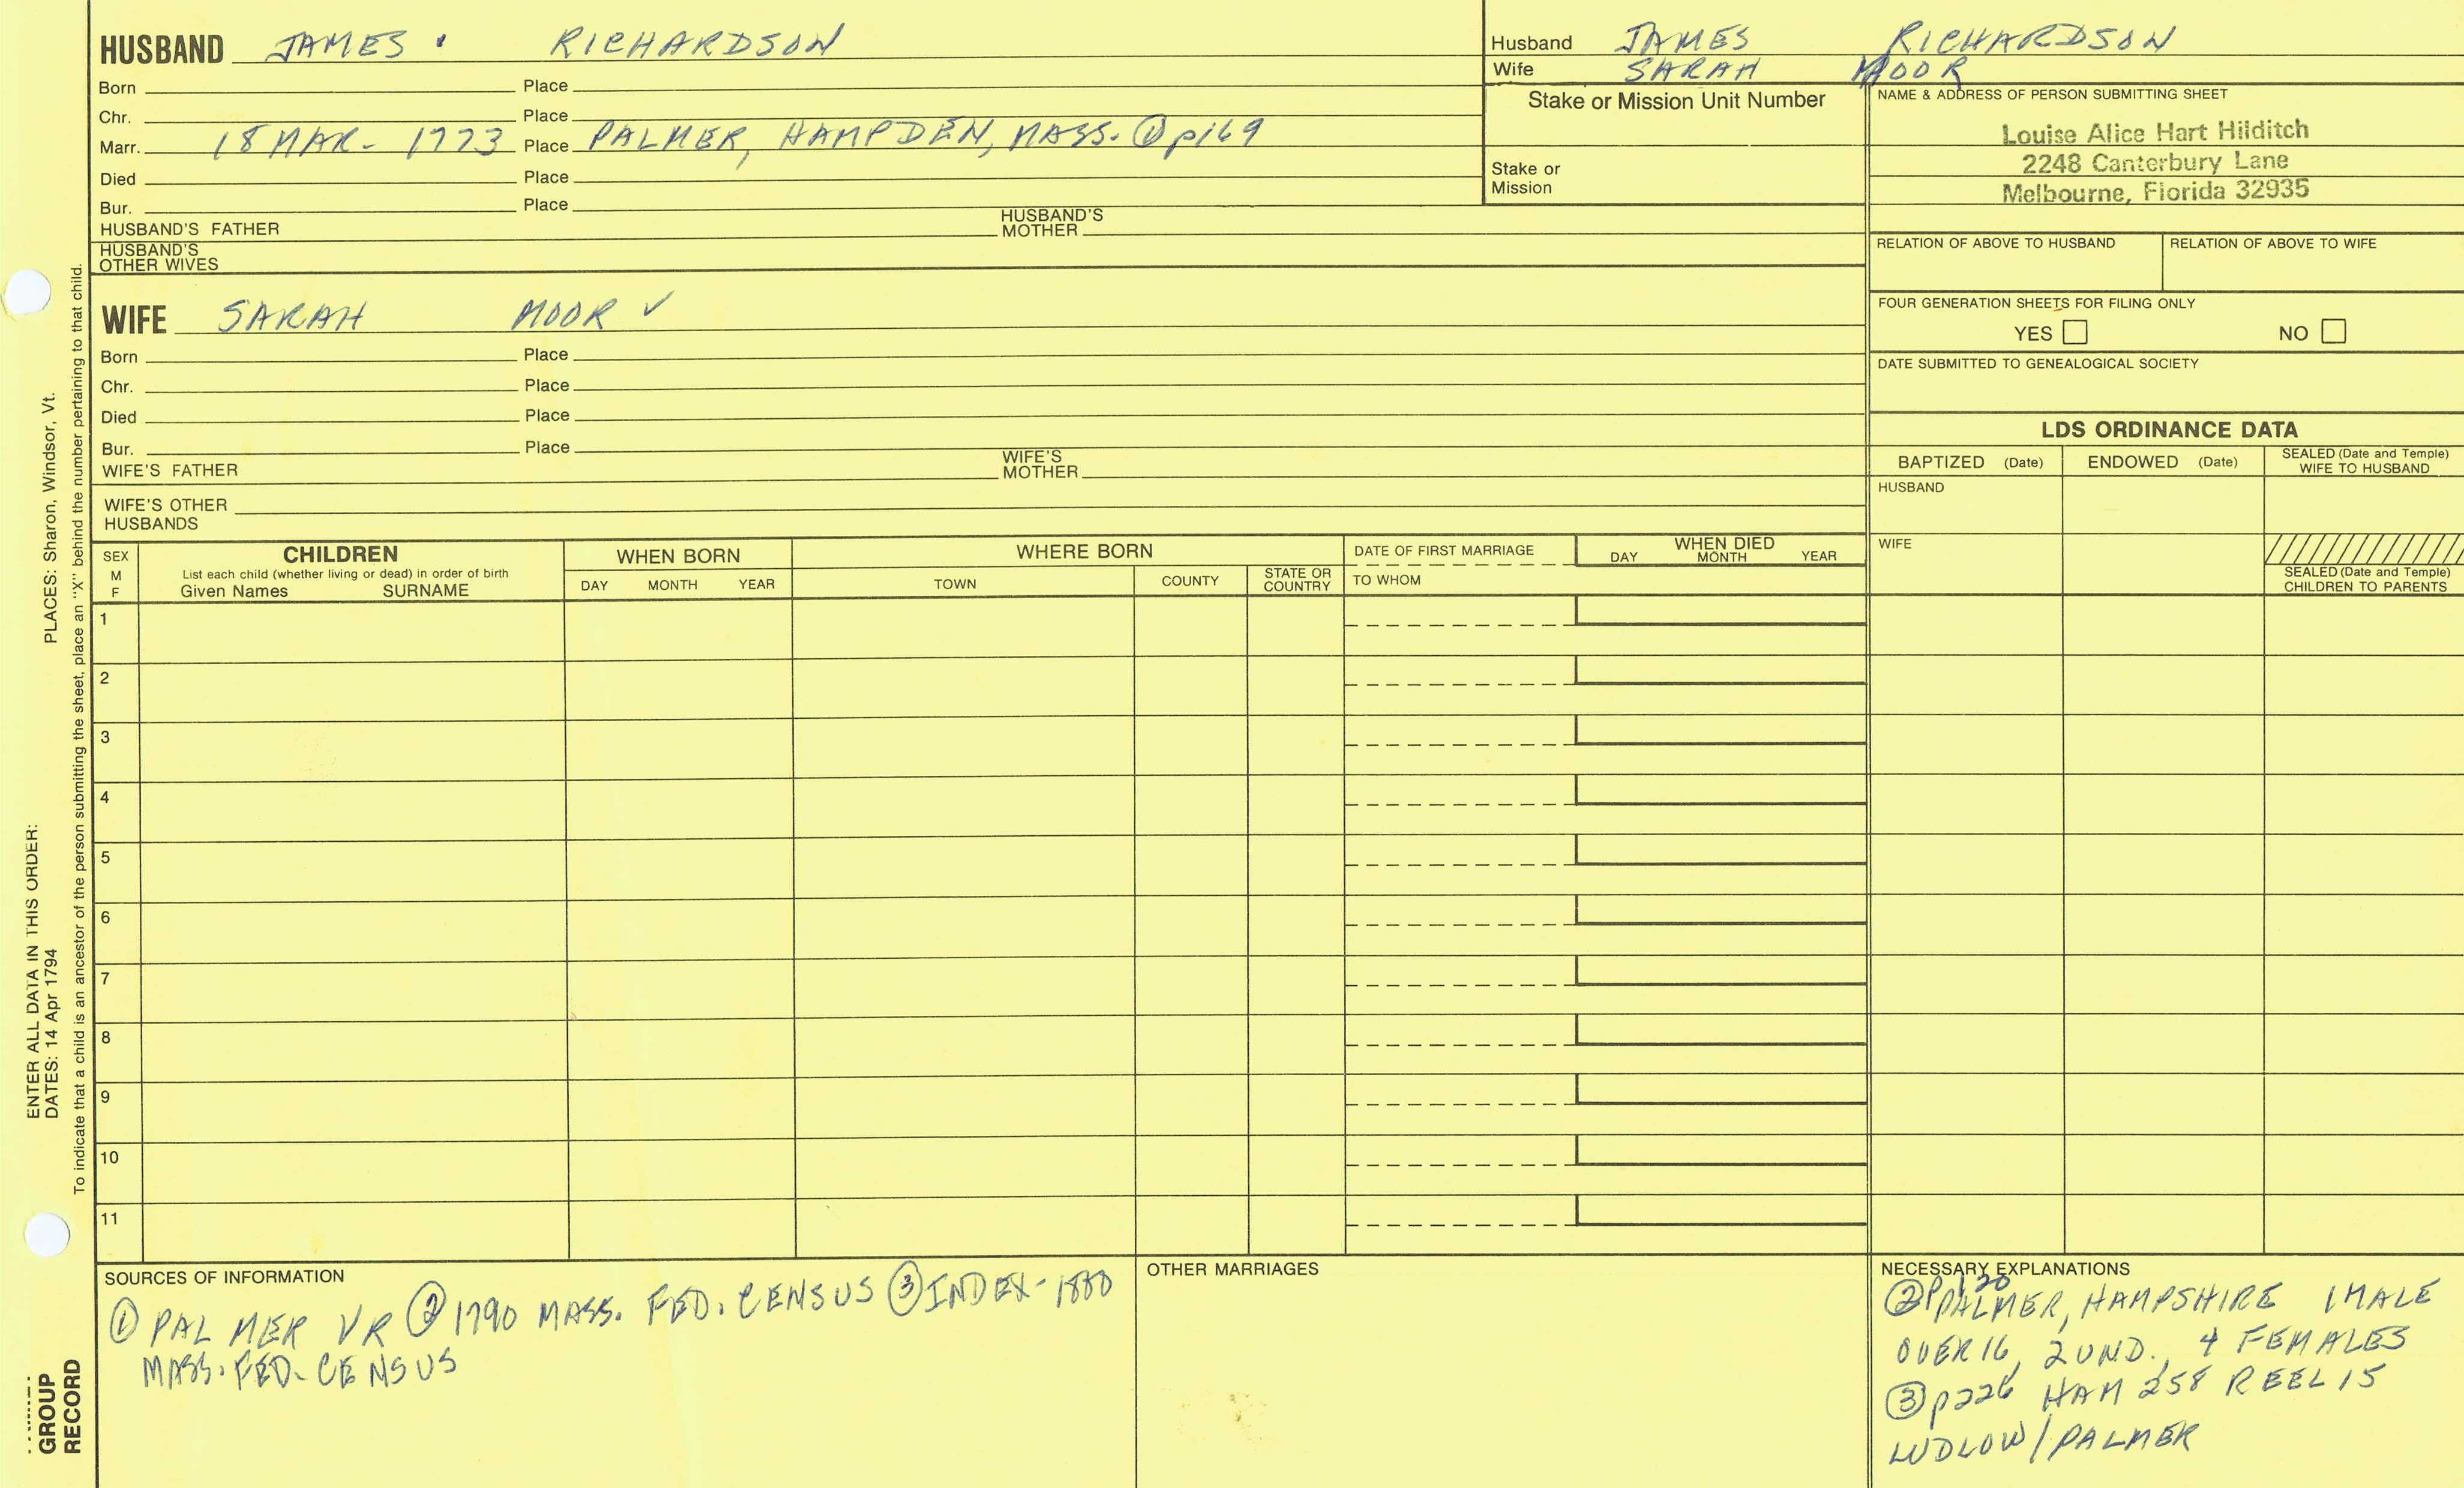 HUSBAND JAMES . RICHARDSON
Born Place
Chr. Place
Marr. 18 MAR - 1773 Place PALMER, HAMPDEN, MASS. ① p169
Died Place
Bur. Place
HUSBAND'S FATHER HUSBAND'S MOTHER
HUSBAND'S OTHER WIVES
Husband JAMES RICHARDSON
Wife SARAH MOOR
Stake or Mission Unit Number
Stake or
Mission
NAME & ADDRESS OF PERSON SUBMITTING SHEET
Louise Alice Hart Hilditch
2248 Canterbury Lane
Melbourne, Florida 32935
RELATION OF ABOVE TO HUSBAND RELATION OF ABOVE TO WIFE
FOUR GENERATION SHEETS FOR FILING ONLY
YES NO
DATE SUBMITTED TO GENEALOGICAL SOCIETY
WIFE SARAH MOOR ✓
Born Place
Chr. Place
Died Place
Bur. Place
WIFE'S FATHER WIFE'S MOTHER
WIFE'S OTHER
HUSBANDS
LDS ORDINANCE DATA
BAPTIZED (Date) ENDOWED (Date) SEALED (Date and Temple) WIFE TO HUSBAND
HUSBAND
WIFE
SEALED (Date and Temple)
CHILDREN TO PARENTS
SEX
M
F
CHILDREN
List each child (whether living or dead) in order of birth
Given Names SURNAME
WHEN BORN
DAY MONTH YEAR
WHERE BORN
TOWN COUNTY STATE OR COUNTRY
DATE OF FIRST MARRIAGE
TO WHOM
WHEN DIED
DAY MONTH YEAR
1
2
3
4
5
6
7
8
9
10
11
SOURCES OF INFORMATION
① PALMER VR ② 1790 MASS. FED. CENSUS ③ INDEX - 1800
MASS. FED. CENSUS
OTHER MARRIAGES
NECESSARY EXPLANATIONS
② p120
PALMER, HAMPSHIRE 1 MALE
OVER 16, 2 UND., 4 FEMALES
③ p226 HAM 258 REEL 15
LUDLOW / PALMER
ENTER ALL DATA IN THIS ORDER:
DATES: 14 Apr 1794 PLACES: Sharon, Windsor, Vt.
To indicate that a child is an ancestor of the person submitting the sheet, place an "X" behind the number pertaining to that child.
GROUP
RECORD